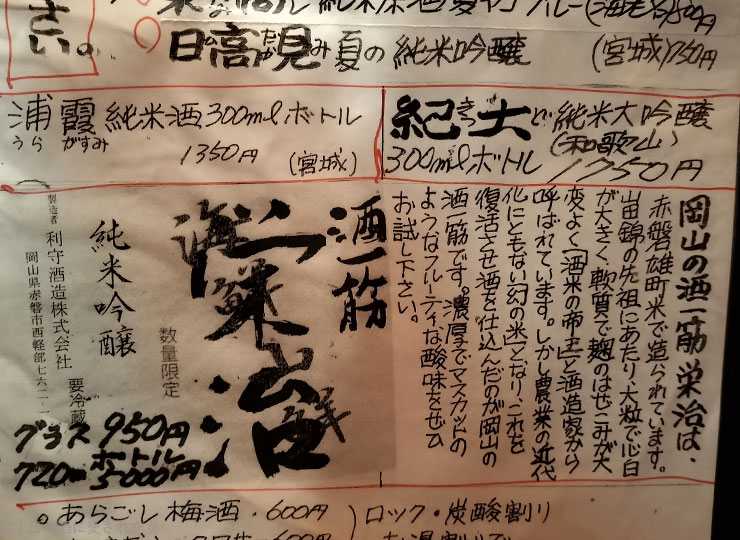 さい。
純米原酒夏ヤゴブルー(海老名)800円
日高見 夏の純米吟醸 (宮城)750円
のたかみ
浦霞 純米酒 300mlボトル
うらがすみ
1350円 (宮城)
紀土 純米大吟醸
きっど
(和歌山)
300mlボトル 1750円
岡山の酒一筋 栄治は、
赤磐雄町米で造られています。
山田錦の先祖にあたり、大粒で心白
が大きく、軟質で麹のはぜこみが大
変よく「酒米の帝王」と酒造家から
呼ばれています。しかし農業の近代
化にともない「幻の米」となり、これを
復活させ酒を仕込んだのが岡山の
酒一筋です。濃厚でマスカットの
ようなフルーティな酸味をぜひ
お試し下さい。
酒一筋
数量限定
純米吟醸
要冷蔵
製造者 利守酒造株式会社
岡山県赤磐市西軽部七六二-一
グラス 950円
720mlボトル 5000円
。あらごし梅酒・600円
ロック・炭酸割り